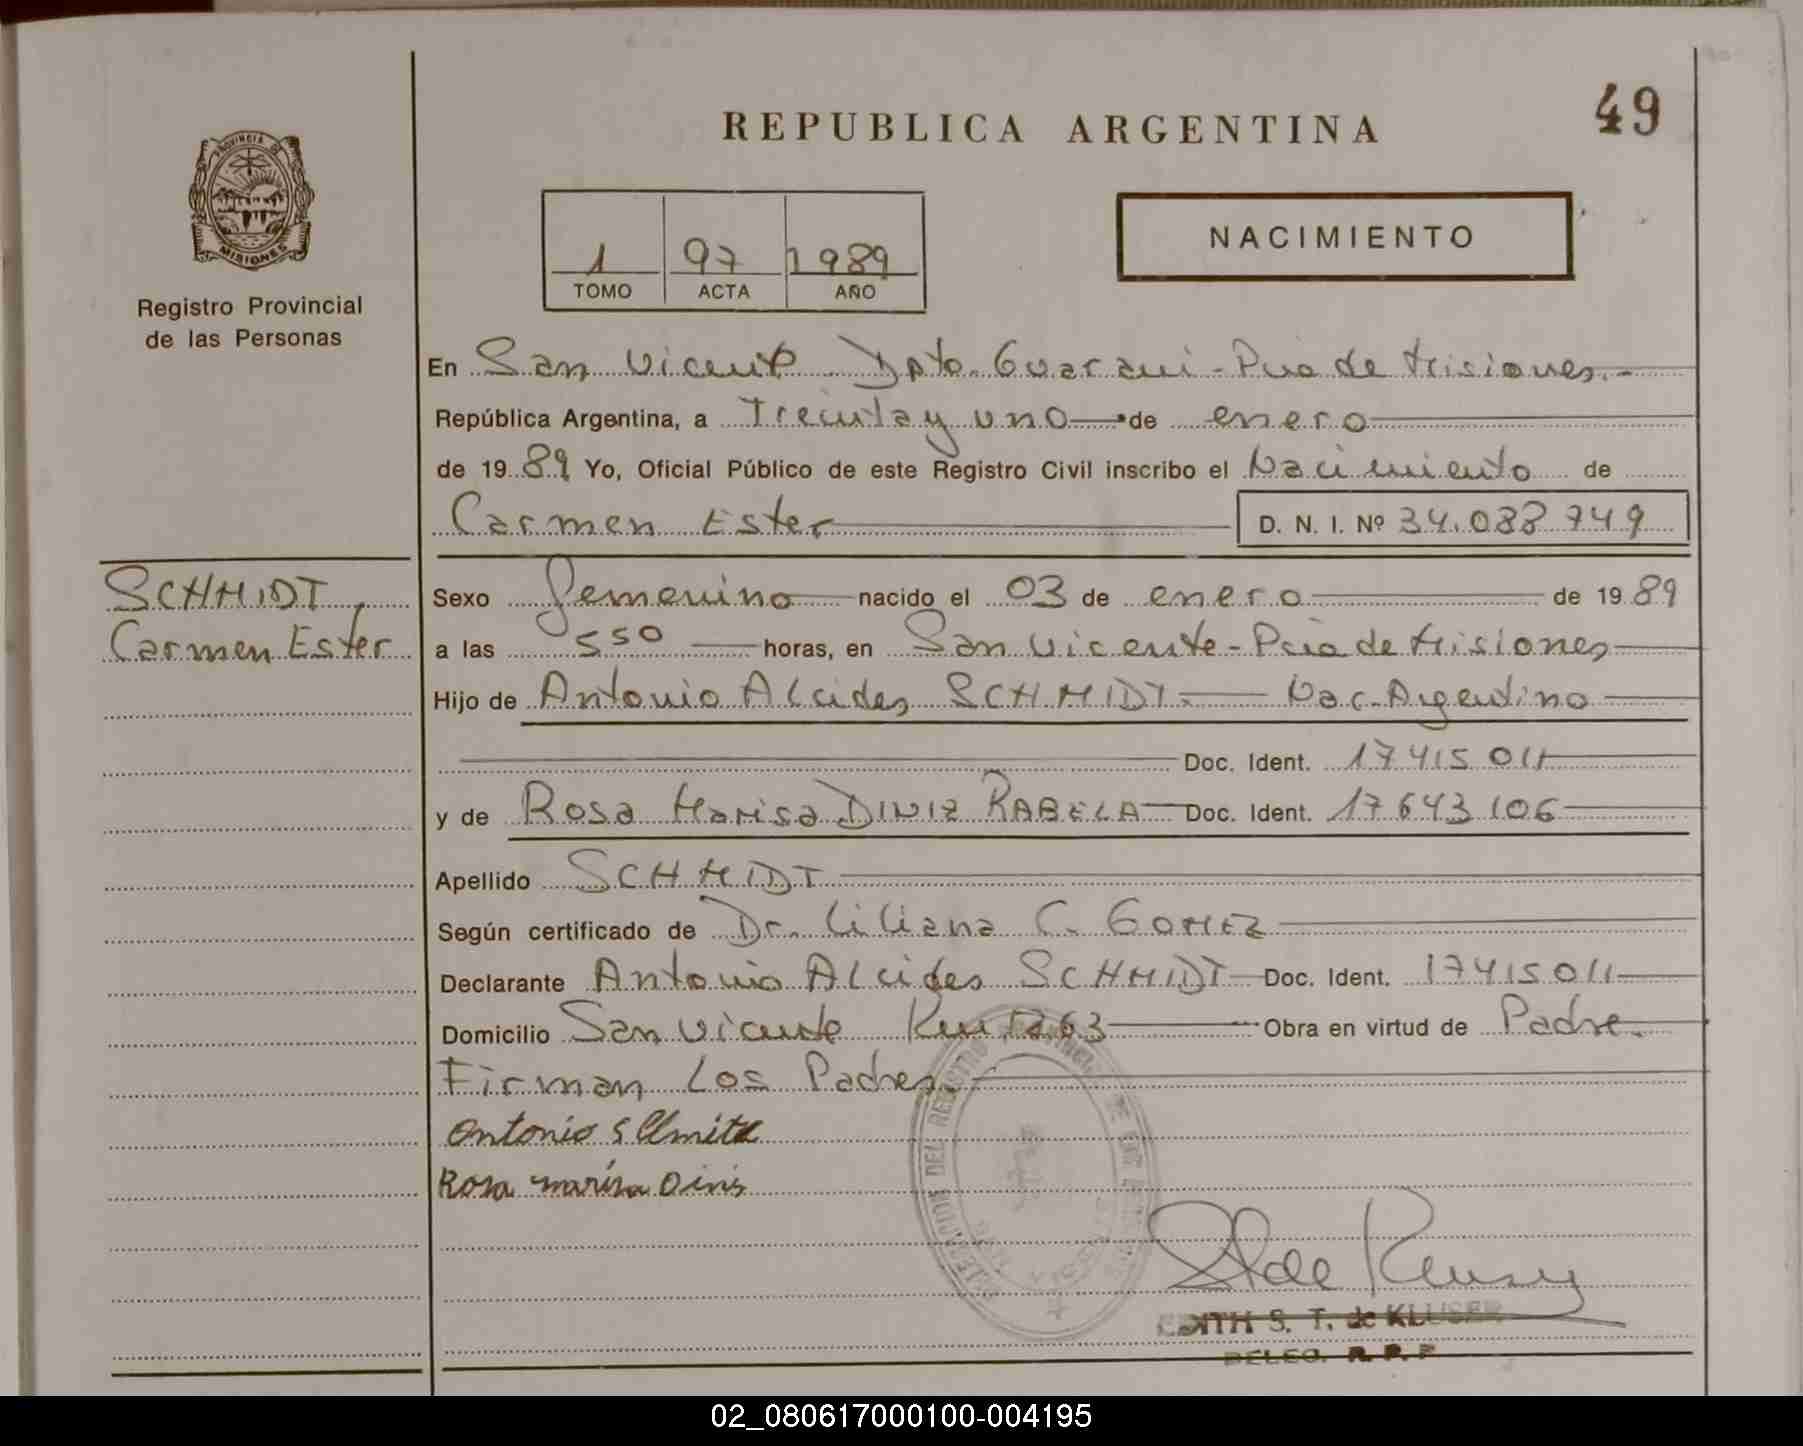 49
REPUBLICA ARGENTINA
PROVINCIA DE
MISIONES
Registro Provincial
de las Personas
1 97 1989
TOMO ACTA AÑO
NACIMIENTO
En San Vicente Dpto. Guarani - Pcia de Misiones.-
República Argentina, a Treinta y uno de enero
de 1989 Yo, Oficial Público de este Registro Civil inscribo el Nacimiento de
Carmen Ester D. N. I. Nº 34.088 749
SCHMIDT,
Carmen Ester
Sexo femenino nacido el 03 de enero de 1989
a las 550 horas, en San Vicente - Pcia de Misiones
Hijo de Antonio Alcides SCHMIDT.- Nac. Argentino
Doc. Ident. 17 415 011
y de Rosa Marisa DINIZ RABELA Doc. Ident. 17 643 106
Apellido SCHMIDT
Según certificado de Dr. Liliana C. GOMEZ
Declarante Antonio Alcides SCHMIDT Doc. Ident. 17415011
Domicilio San Vicente Km 1263 Obra en virtud de Padre.
Firman Los Padres.-
Antonio
Rosa marisa Dinis
EDITH S. T. de KLUSER
DELEG. R. P. P
02_080617000100-004195